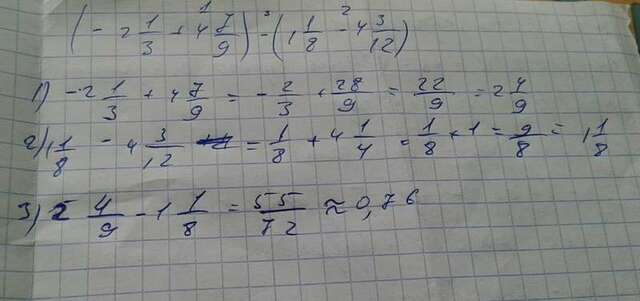 (-2 1/3 + 4 7/9) - (1 1/8 - 4 3/12)
1) -2 1/3 + 4 7/9 = - 2/3 + 28/9 = 22/9 = 2 4/9
2) 1 1/8 - 4 3/12 = 1/8 + 4 1/4 = 1/8 + 1 = 9/8 = 1 1/8
3) 2 4/9 - 1 1/8 = 55/72 ≈ 0,76